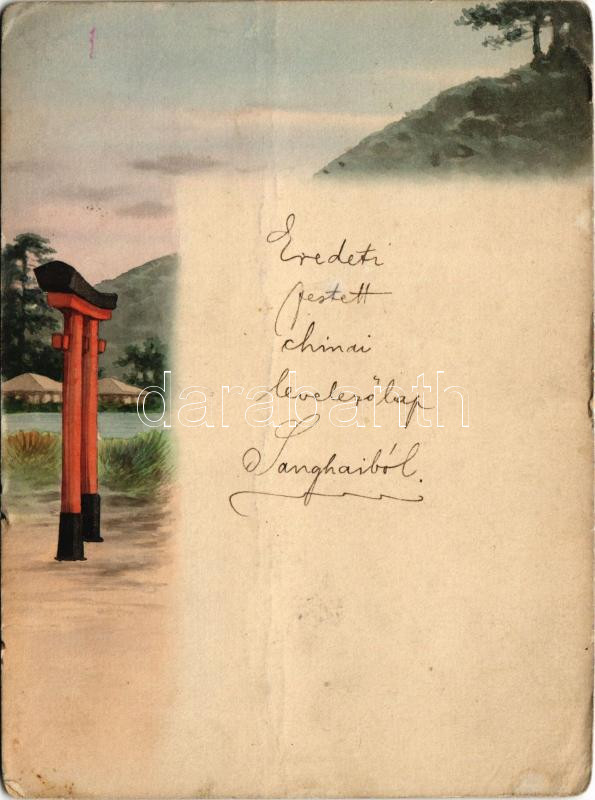 Eredeti
festett
chinai
levelezőlap
darabanth
Sanghaiból.